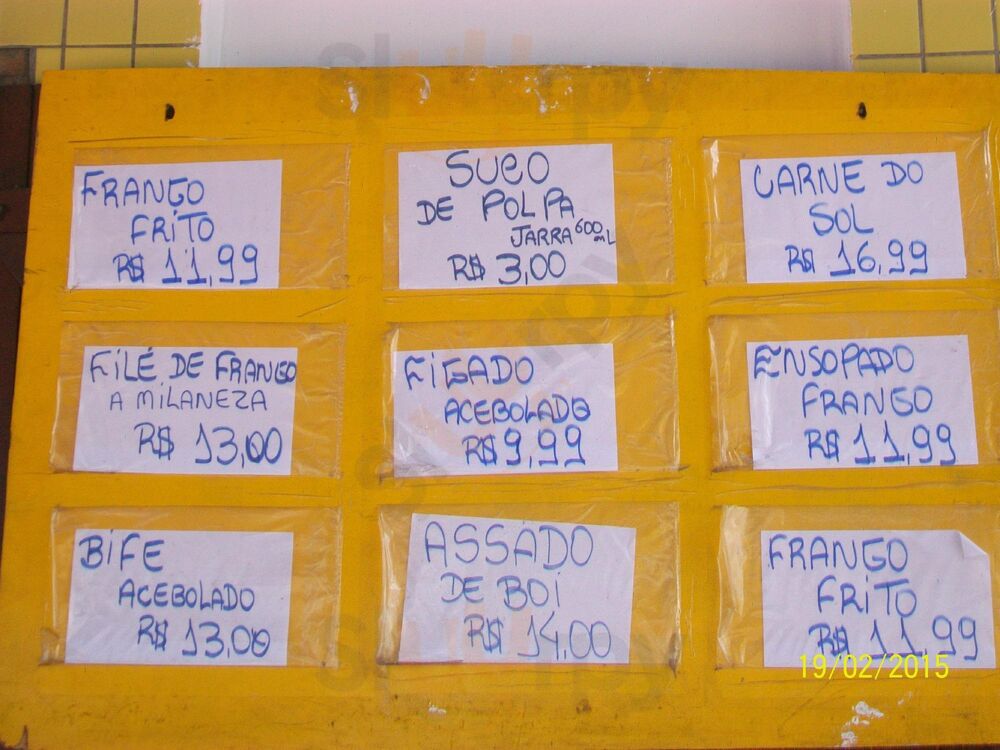 FRANGO
FRITO
R$ 11,99
SUCO
DE POLPA
JARRA 600 mL
R$ 3,00
CARNE DO
SOL
R$ 16,99
FILÉ DE FRANGO
A MILANEZA
R$ 13,00
FIGADO
ACEBOLADO
R$ 9,99
ENSOPADO
FRANGO
R$ 11,99
BIFE
ACEBOLADO
R$ 13,00
ASSADO
DE BOI
R$ 14,00
FRANGO
FRITO
R$ 11,99
19/02/2015